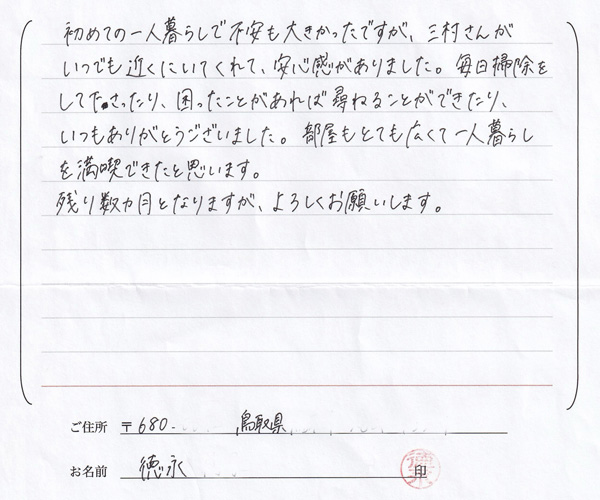 初めての一人暮らしで不安も大きかったですが、三村さんが
いつでも近くにいてくれて、安心感がありました。毎日掃除を
して下さったり、困ったことがあれば尋ねることができたり、
いつもありがとうございました。部屋もとても広くて一人暮らし
を満喫できたと思います。
残り数ヵ月となりますが、よろしくお願いします。
ご住所 〒680- 鳥取県
お名前 徳永 印